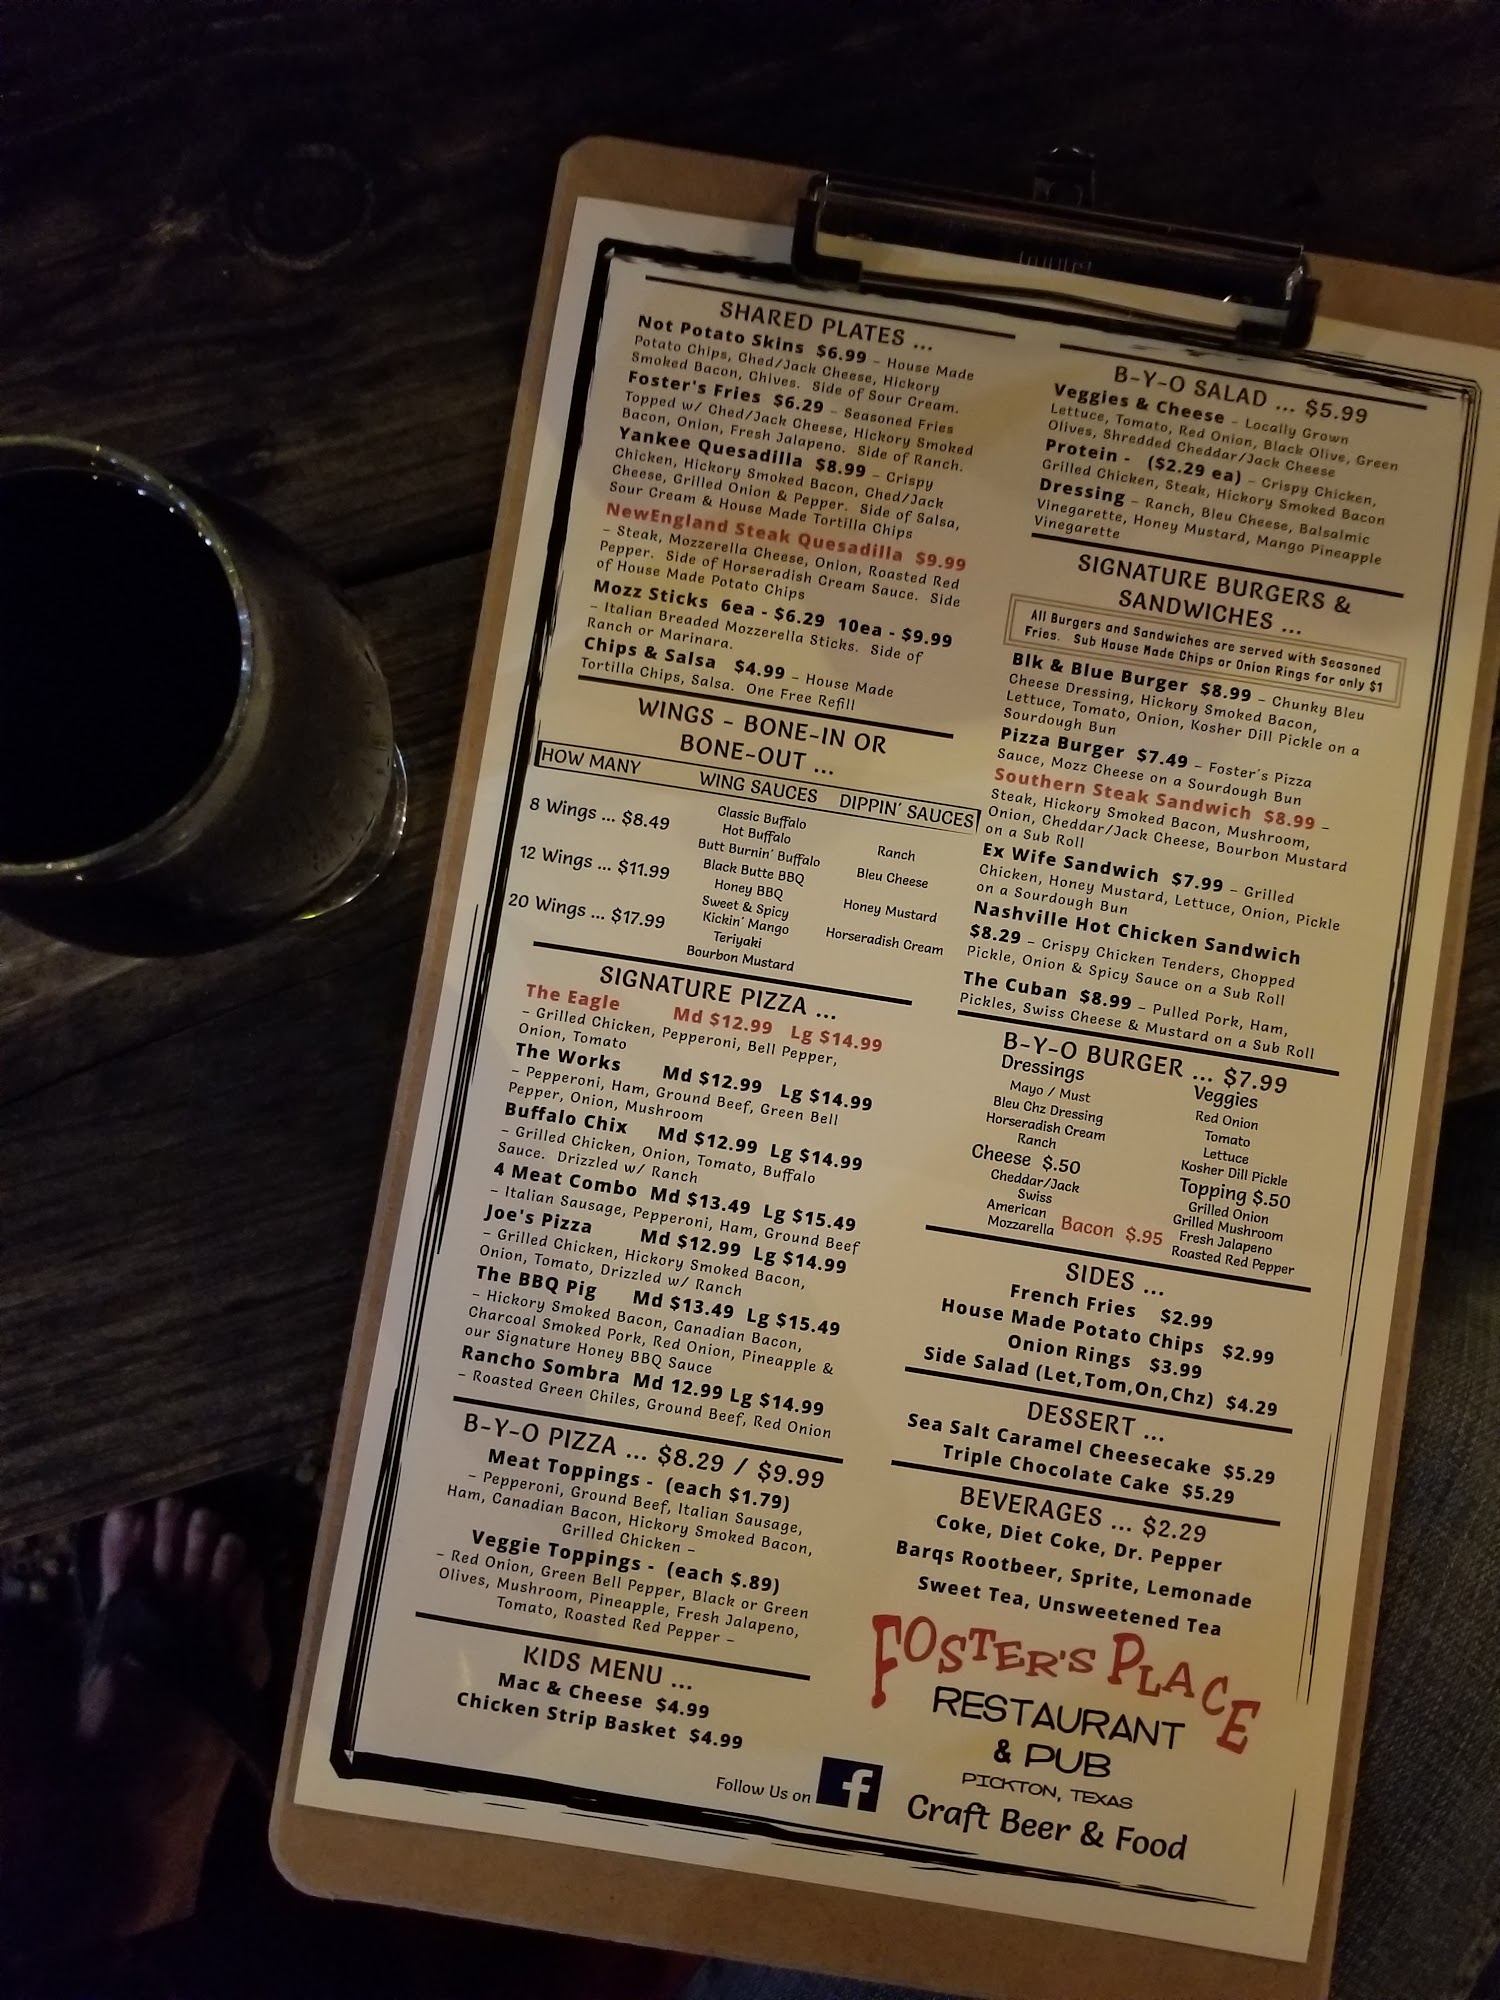 SHARED PLATES ...
Not Potato Skins $6.99 – House Made
Potato Chips, Ched/Jack Cheese, Hickory
Smoked Bacon, Chives. Side of Sour Cream.
Foster's Fries $6.29 – Seasoned Fries
Topped w/ Ched/Jack Cheese, Hickory Smoked
Bacon, Onion, Fresh Jalapeno. Side of Ranch.
Yankee Quesadilla $8.99 – Crispy
Chicken, Hickory Smoked Bacon, Ched/Jack
Cheese, Grilled Onion & Pepper. Side of Salsa,
Sour Cream & House Made Tortilla Chips
NewEngland Steak Quesadilla $9.99
– Steak, Mozzerella Cheese, Onion, Roasted Red
Pepper. Side of Horseradish Cream Sauce. Side
of House Made Potato Chips
Mozz Sticks 6ea - $6.29 10ea - $9.99
– Italian Breaded Mozzerella Sticks. Side of
Ranch or Marinara.
Chips & Salsa $4.99 – House Made
Tortilla Chips, Salsa. One Free Refill
WINGS – BONE-IN OR
BONE-OUT ...
HOW MANY WING SAUCES DIPPIN' SAUCES
8 Wings ... $8.49
12 Wings ... $11.99
20 Wings ... $17.99
Classic Buffalo
Hot Buffalo
Butt Burnin' Buffalo
Black Butte BBQ
Honey BBQ
Sweet & Spicy
Kickin' Mango
Teriyaki
Bourbon Mustard
Ranch
Bleu Cheese
Honey Mustard
Horseradish Cream
SIGNATURE PIZZA ...
The Eagle Md $12.99 Lg $14.99
– Grilled Chicken, Pepperoni, Bell Pepper,
Onion, Tomato
The Works Md $12.99 Lg $14.99
– Pepperoni, Ham, Ground Beef, Green Bell
Pepper, Onion, Mushroom
Buffalo Chix Md $12.99 Lg $14.99
– Grilled Chicken, Onion, Tomato, Buffalo
Sauce. Drizzled w/ Ranch
4 Meat Combo Md $13.49 Lg $15.49
– Italian Sausage, Pepperoni, Ham, Ground Beef
Joe's Pizza Md $12.99 Lg $14.99
– Grilled Chicken, Hickory Smoked Bacon,
Onion, Tomato, Drizzled w/ Ranch
The BBQ Pig Md $13.49 Lg $15.49
– Hickory Smoked Bacon, Canadian Bacon,
Charcoal Smoked Pork, Red Onion, Pineapple &
our Signature Honey BBQ Sauce
Rancho Sombra Md 12.99 Lg $14.99
– Roasted Green Chiles, Ground Beef, Red Onion
B-Y-O PIZZA ... $8.29 / $9.99
Meat Toppings - (each $1.79)
– Pepperoni, Ground Beef, Italian Sausage,
Ham, Canadian Bacon, Hickory Smoked Bacon,
Grilled Chicken –
Veggie Toppings - (each $.89)
– Red Onion, Green Bell Pepper, Black or Green
Olives, Mushroom, Pineapple, Fresh Jalapeno,
Tomato, Roasted Red Pepper –
KIDS MENU ...
Mac & Cheese $4.99
Chicken Strip Basket $4.99
Follow Us on f
B-Y-O SALAD ... $5.99
Veggies & Cheese – Locally Grown
Lettuce, Tomato, Red Onion, Black Olive, Green
Olives, Shredded Cheddar/Jack Cheese
Protein - ($2.29 ea) – Crispy Chicken,
Grilled Chicken, Steak, Hickory Smoked Bacon
Dressing – Ranch, Bleu Cheese, Balsalmic
Vinegarette, Honey Mustard, Mango Pineapple
Vinegarette
SIGNATURE BURGERS &
SANDWICHES ...
All Burgers and Sandwiches are served with Seasoned
Fries. Sub House Made Chips or Onion Rings for only $1
Blk & Blue Burger $8.99 – Chunky Bleu
Cheese Dressing, Hickory Smoked Bacon,
Lettuce, Tomato, Onion, Kosher Dill Pickle on a
Sourdough Bun
Pizza Burger $7.49 – Foster's Pizza
Sauce, Mozz Cheese on a Sourdough Bun
Southern Steak Sandwich $8.99 –
Steak, Hickory Smoked Bacon, Mushroom,
Onion, Cheddar/Jack Cheese, Bourbon Mustard
on a Sub Roll
Ex Wife Sandwich $7.99 – Grilled
Chicken, Honey Mustard, Lettuce, Onion, Pickle
on a Sourdough Bun
Nashville Hot Chicken Sandwich
$8.29 – Crispy Chicken Tenders, Chopped
Pickle, Onion & Spicy Sauce on a Sub Roll
The Cuban $8.99 – Pulled Pork, Ham,
Pickles, Swiss Cheese & Mustard on a Sub Roll
B-Y-O BURGER ... $7.99
Dressings
Mayo / Must
Bleu Chz Dressing
Horseradish Cream
Ranch
Cheese $.50
Cheddar/Jack
Swiss
American
Mozzarella
Bacon $.95
Veggies
Red Onion
Tomato
Lettuce
Kosher Dill Pickle
Topping $.50
Grilled Onion
Grilled Mushroom
Fresh Jalapeno
Roasted Red Pepper
SIDES ...
French Fries $2.99
House Made Potato Chips $2.99
Onion Rings $3.99
Side Salad (Let,Tom,On,Chz) $4.29
DESSERT ...
Sea Salt Caramel Cheesecake $5.29
Triple Chocolate Cake $5.29
BEVERAGES ... $2.29
Coke, Diet Coke, Dr. Pepper
Barqs Rootbeer, Sprite, Lemonade
Sweet Tea, Unsweetened Tea
FOSTER'S PLACE
RESTAURANT
& PUB
PICKTON, TEXAS
Craft Beer & Food